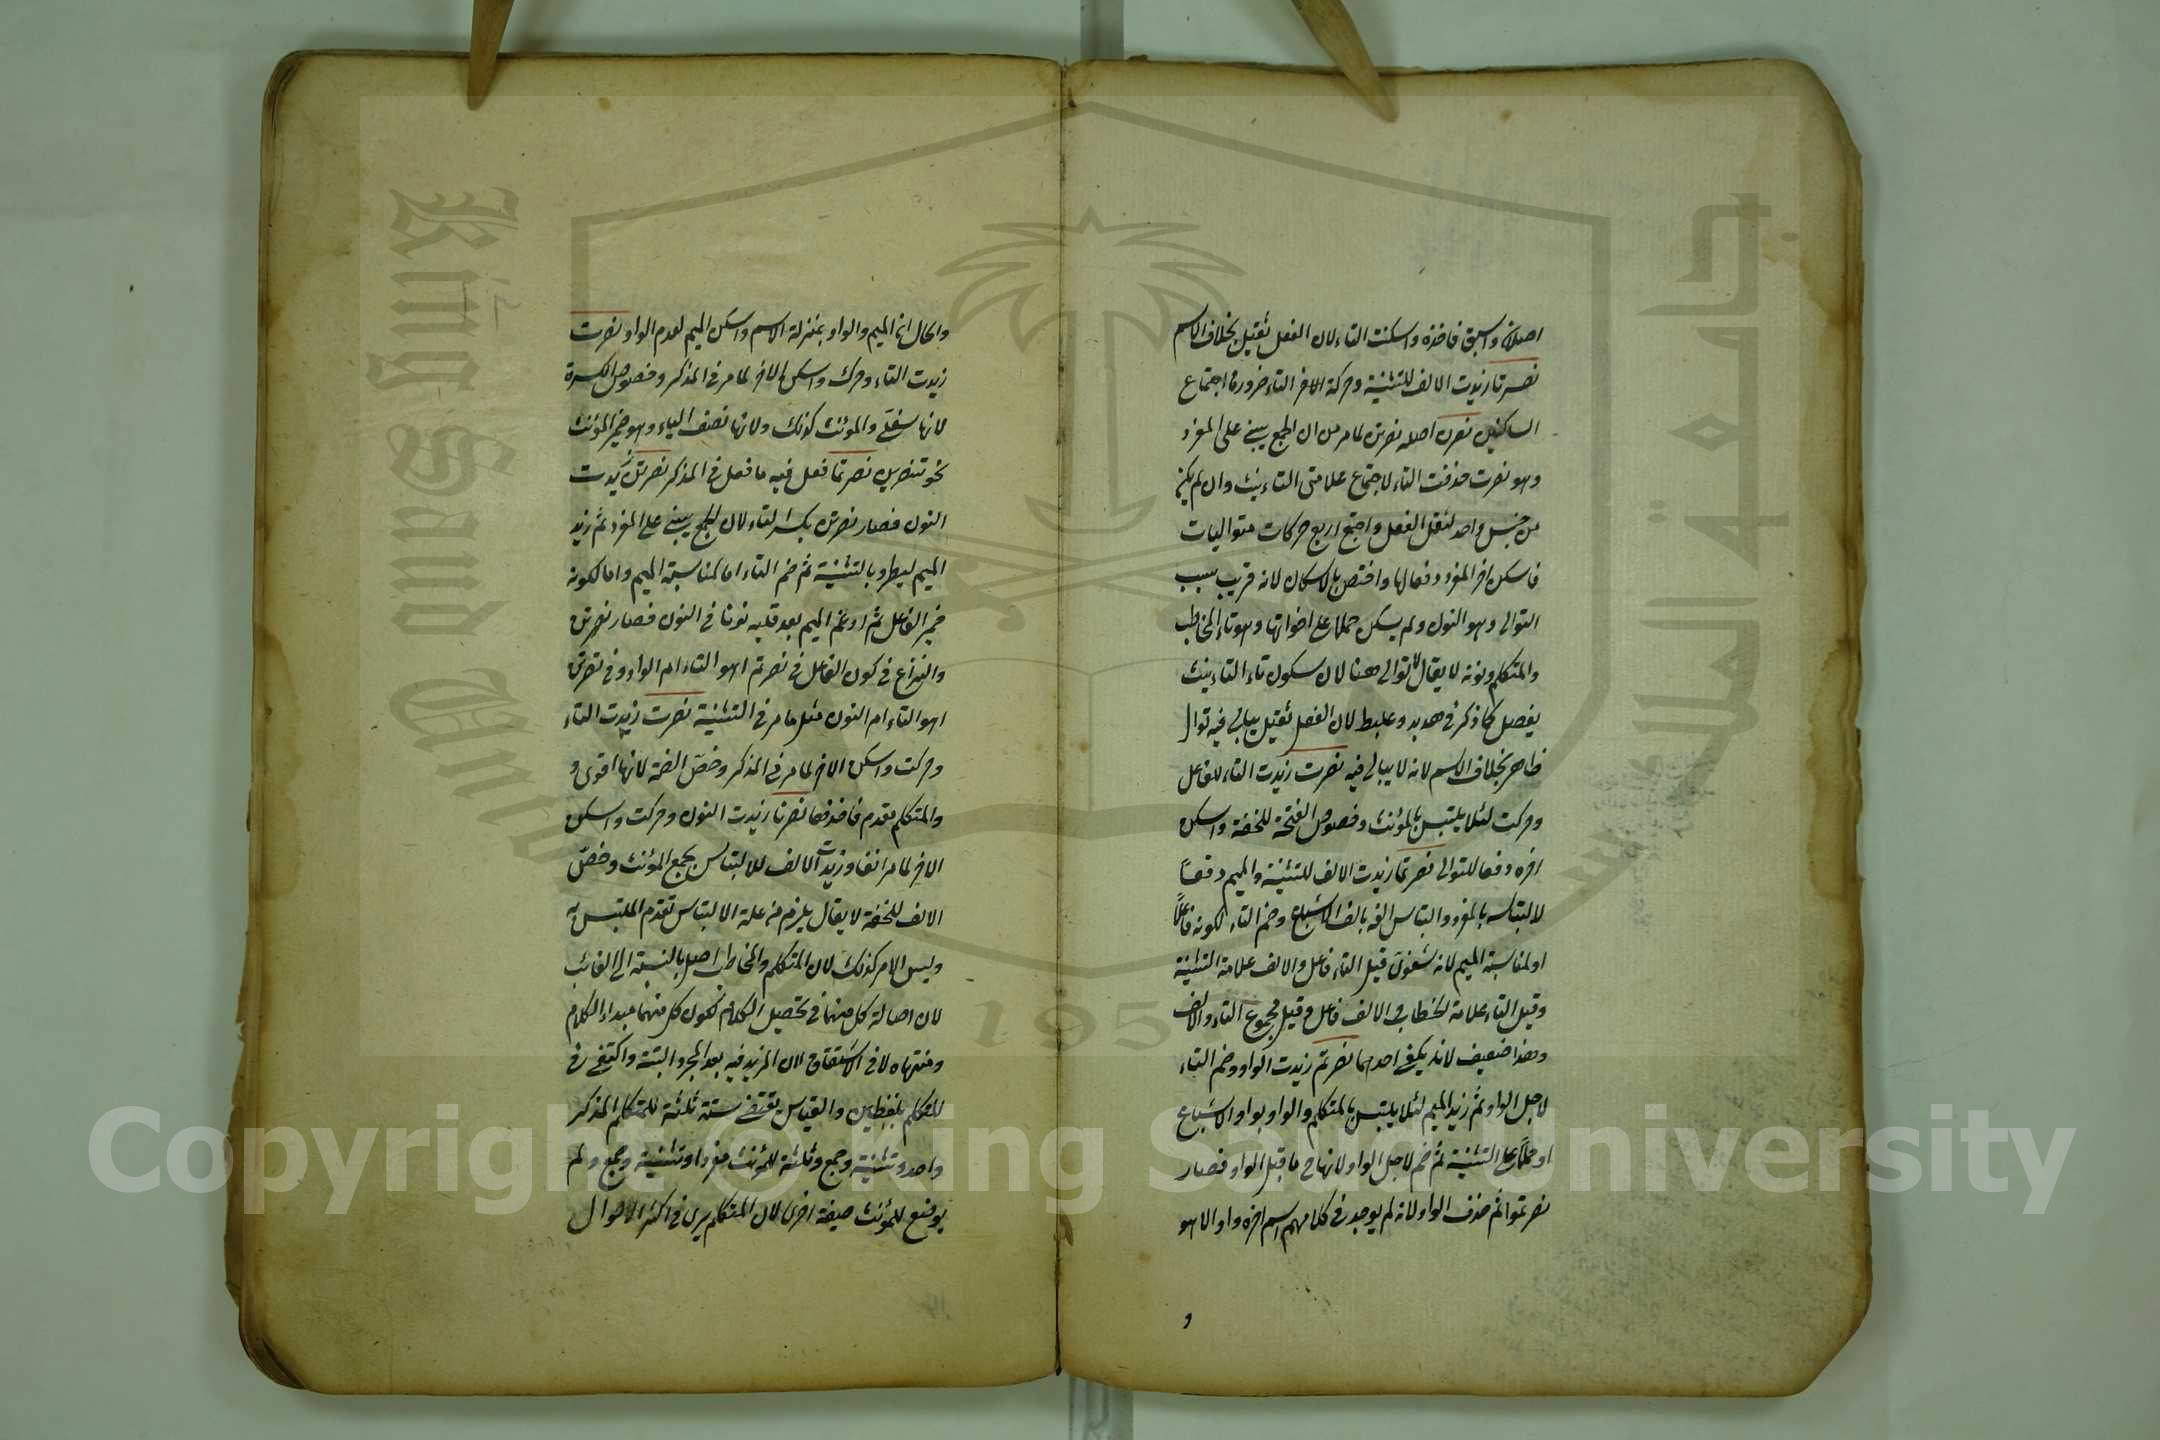 اصلا واسبق فاخذه واسكنت التاء لان الفعل ثقيل بخلاف الاسم
نصرتا زيدت الالف للتثنية وحركة الاخر التاء ضرورة اجتماع
الساكنين نصرن اصله نصرتن لما مر من ان الجمع يبنى على المفرد
وهو نصرت حذفت التاء لاجتماع علامتى التاءنيث وان لم يكن
من جنس واحد لثقل الفعل واجتمع اربع حركات متواليات
فاسكن اخر المفرد دفعا لها واختص بالاسكان لانه قريب بسبب
التوالى وهو النون ولم يسكن حملا على اخواتها وهو تاء المخاطب
والمتكلم ونونه لا يقال لا توالى هنا لان سكون تاء التاءنيث
يفصل كما ذكر فى هدبد وعلبط لان الفعل ثقيل يبالى فيه توال
ظاهر بخلاف الاسم لانه لا يبالى فيه نصرت زيدت التاء للفاعل
وحركت لئلا يلتبس بالمؤنث وخصوص الفتحة للخفة واسكن
اخره دفعا للتوالى نصرتما زيدت الالف للتثنية والميم دفعا
لالتباسه بالمفرد والتباس الفه بالف الاشباع وضم التاء لكونه فاعلا
او لمناسبة الميم لانه شفوى قيل التاء فاعل والالف علامة التثنية
وقيل التاء علامة الخطاب والالف فاعل وقيل مجموع التاء والالف
وهذا ضعيف لانه يكفى احدهما نصرتم زيدت الواو وضم التاء
لاجل الواو ثم زيد الميم لئلا يلتبس بالمتكلم والواو بواو الاشباع
او حملا على التثنية ثم ضم لاجل الواو لانها ما قبل الواو فصار
نصرتموا ثم حذف الواو لانه لم يوجد فى كلامهم اسم اخره واو الا هو
و
والحال ان الميم والواو بمنزلة الاسم واسكن الميم لعدم الواو نصرت
زيدت التاء وحرك واسكن الاخر لما مر فى المذكر وخصوص الكسرة
لانها سفلى والمؤنث كذلك ولانها نصف الياء وهو ضمير المؤنث
نحو تنصرين نصرتما فعل فيه ما فعل فى المذكر نصرتن زيدت
النون فصار نصرتن بكسر التاء لان الجمع يبنى على المفرد ثم زيد
الميم ليطرد بالتثنية ثم ضم التاء اما لمناسبة الميم واما لكونه
ضمير الفاعل ثم ادغم الميم بعد قلبه نونا فى النون فصار نصرتن
والنزاع فى كون الفاعل فى نصرتم اهو التاء ام الواو وفى نصرتن
اهو التاء ام النون مثل ما مر فى التثنية نصرت زيدت التاء
وحركت واسكن الاخر لما مر فى المذكر وخص الضمة لانها اقوى و
والمتكلم مقدم فاخذها نصرنا زيدت النون وحركت واسكن
الاخر لما مر انفا وزيدت الالف للالتباس بجمع المؤنث وخص
الالف للخفة لا يقال يلزم من علة الالتباس تقدم الملتبس به
وليس الامر كذلك لان المتكلم والمخاطب اصل بالنسبة الى الغائب
لان اصالة كل منهما فى تحصيل الكلام لكون كل منهما مبداء الكلام
ومنتهاه لا فى الاشتقاق لان المزيد فيه بعد المجرد البتة واكتفى فى
للمتكلم بلفظين والقياس يقتضى ستة ثلثة للمتكلم المذكر
واحد وتثنية وجمع وثلثة للمؤنث مفردا وتثنية وجمع ولم
يوضع للمؤنث صيغة اخرى لان المتكلم يرى فى اكثر الاحوال
Copyright © King Saud University